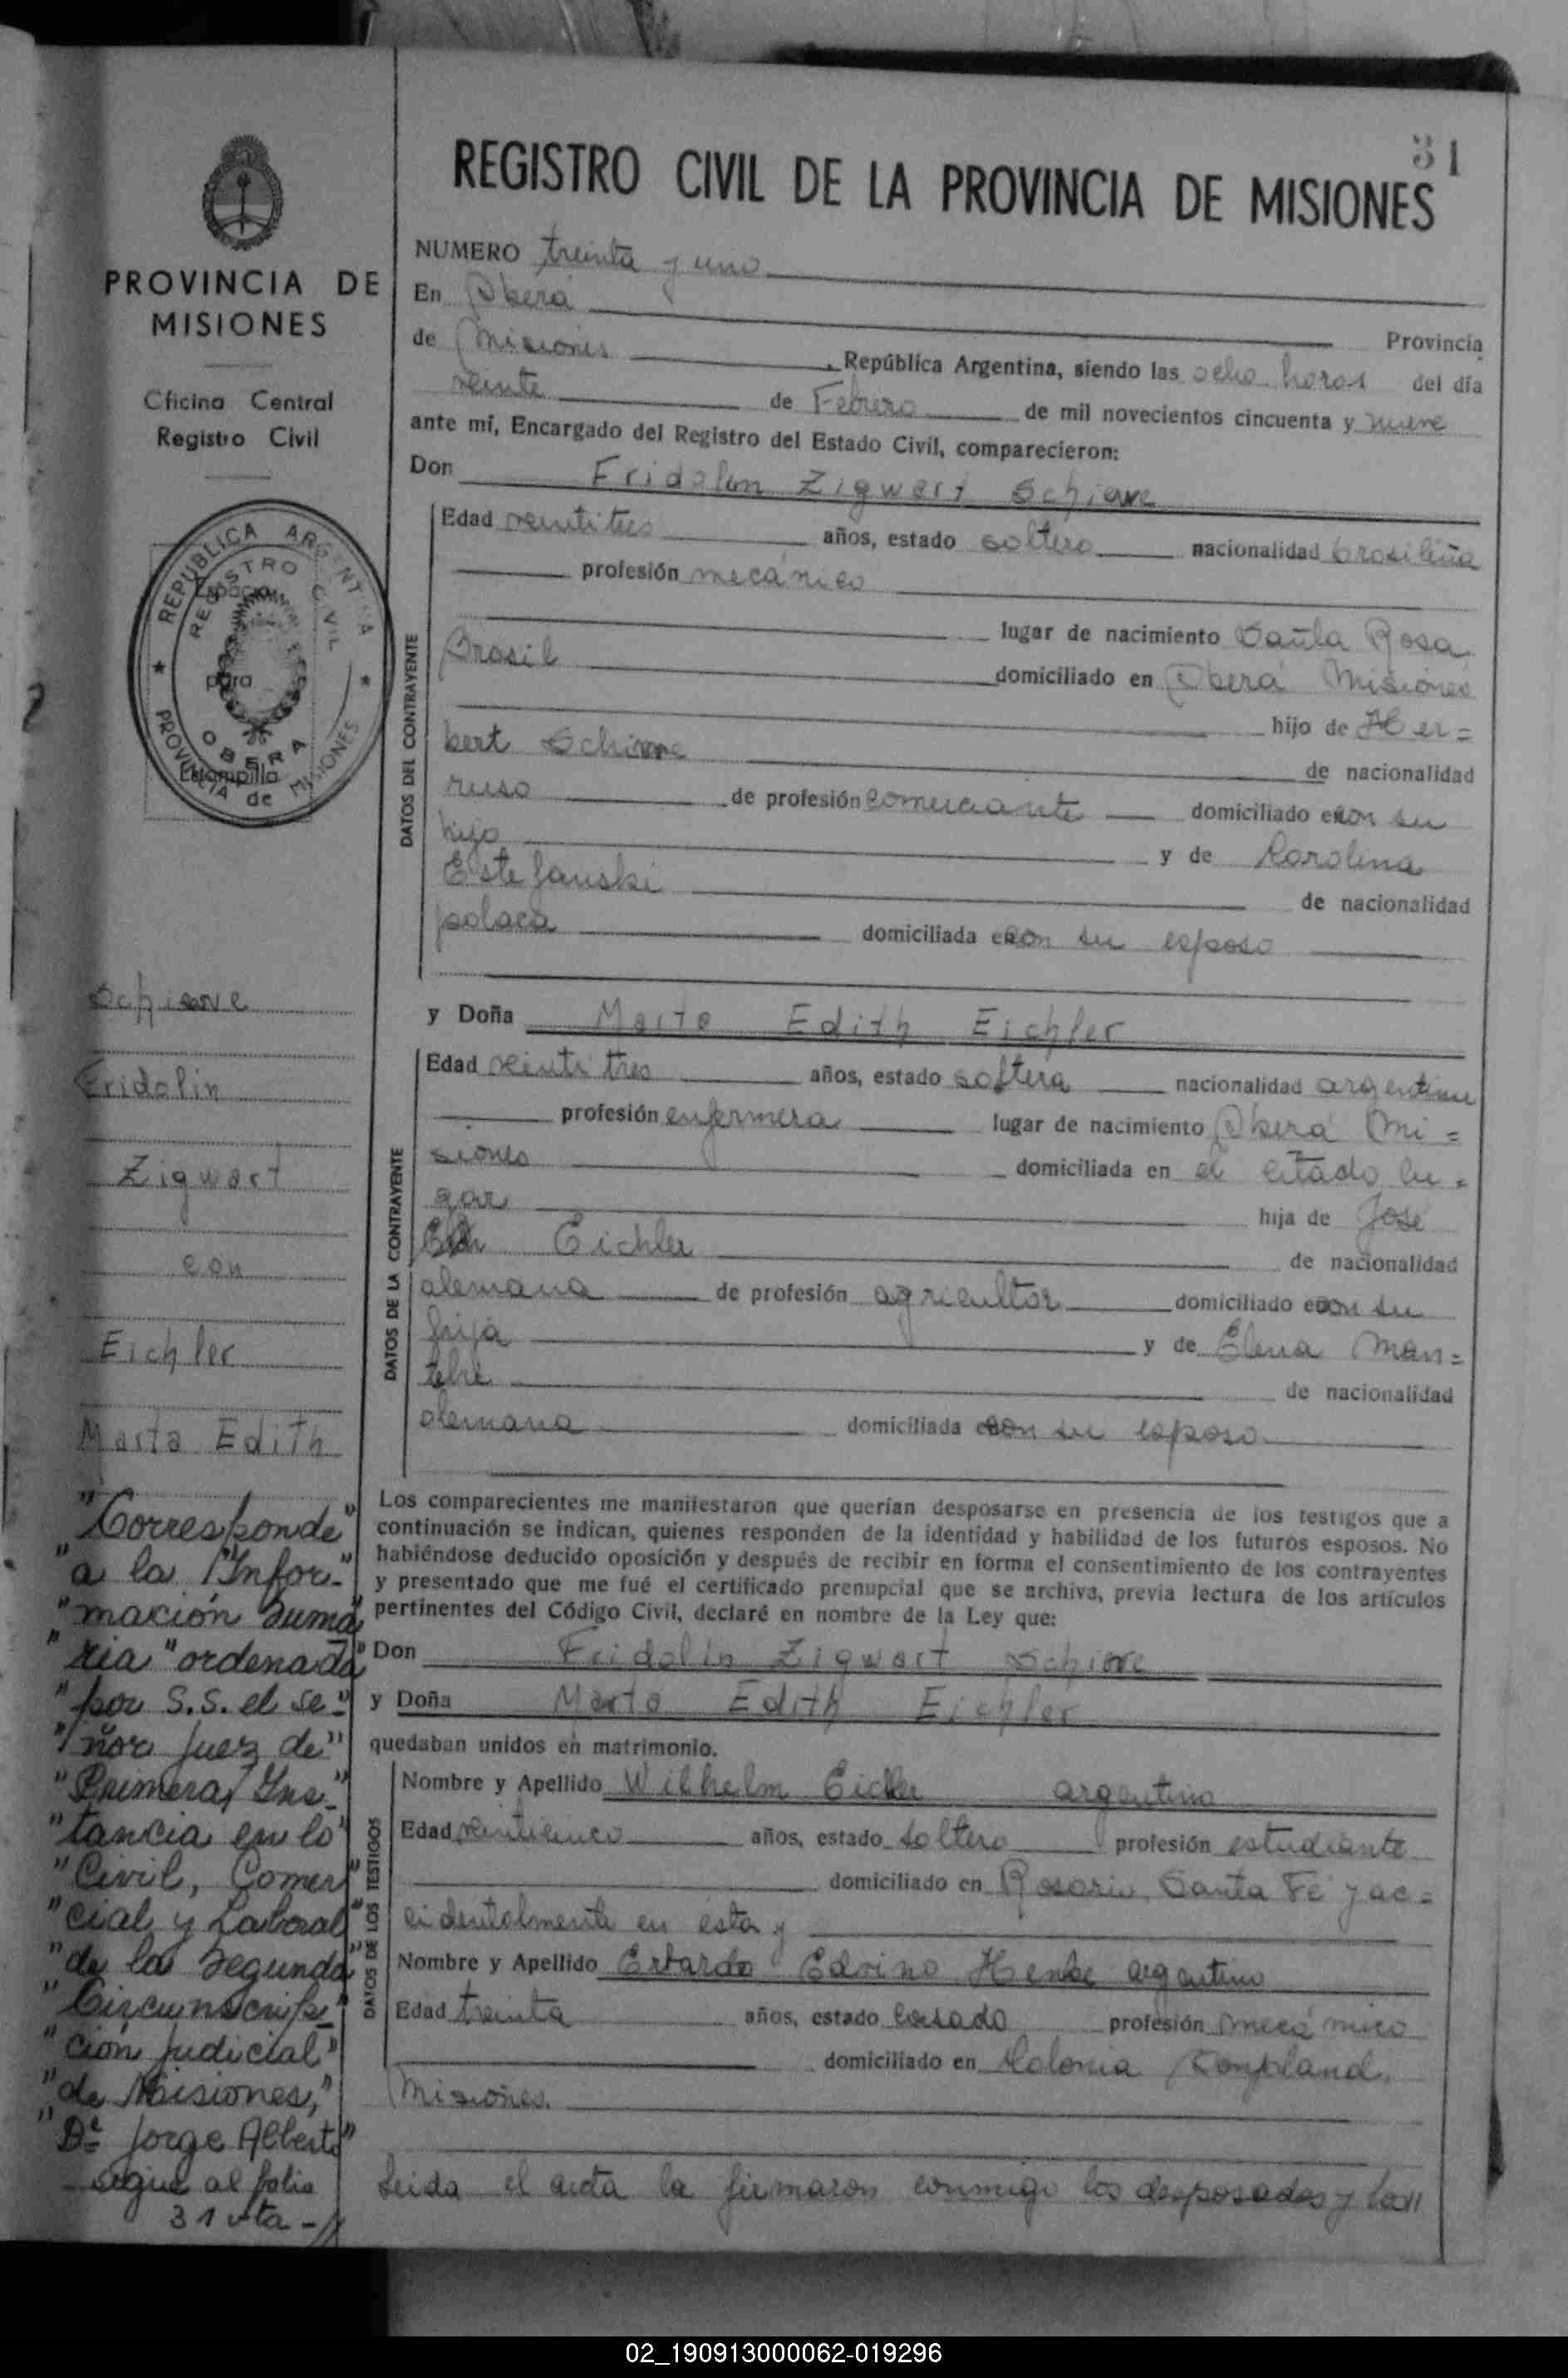 31
REGISTRO CIVIL DE LA PROVINCIA DE MISIONES
PROVINCIA DE
MISIONES
Oficina Central
Registro Civil
REPUBLICA ARGENTINA
REGISTRO CIVIL
OBERA
PROVINCIA de MISIONES
Espacio
para
Estampilla
Fridolin
Zigwart
con
Eichler
Marta Edith
"Corresponde"
"a la "Infor-"
"mación Suma
"ria" ordenada"
"por S.S. el se-"
"ñor Juez de"
"Primera Ins-"
"tancia en lo"
"Civil, Comer"
"cial y Laboral"
"de la Segunda"
"Circunscrip-"
"ción Judicial"
"de Misiones,"
"Dr Jorge Alberto"
sigue al folio
31 vta -//
NUMERO treinta y uno
En Oberá Provincia
de Misiones, República Argentina, siendo las ocho horas del día
veinte de Febrero de mil novecientos cincuenta y nueve
ante mí, Encargado del Registro del Estado Civil, comparecieron:
Don Fridolin Zigwart
DATOS DEL CONTRAYENTE
Edad veintitres años, estado soltero nacionalidad brasileña
profesión mecánico
lugar de nacimiento Santa Rosa
Brasil domiciliado en Oberá Misiones
hijo de Her=
bert de nacionalidad
ruso de profesión comerciante domiciliado con su
hijo y de Karolina
Estefanski de nacionalidad
polaca domiciliada con su esposo
y Doña Marta Edith Eichler
DATOS DE LA CONTRAYENTE
Edad veinti tres años, estado soltera nacionalidad argentina
profesión enfermera lugar de nacimiento Oberá Mi=
siones domiciliada en el citado lu=
gar hija de José
Eichler de nacionalidad
alemana de profesión agricultor domiciliado con su
hija y de Elena Man=
de nacionalidad
alemana domiciliada con su esposo
Los comparecientes me manifestaron que querían desposarse en presencia de los testigos que a
continuación se indican, quienes responden de la identidad y habilidad de los futuros esposos. No
habiéndose deducido oposición y después de recibir en forma el consentimiento de los contrayentes
y presentado que me fué el certificado prenupcial que se archiva, previa lectura de los artículos
pertinentes del Código Civil, declaré en nombre de la Ley que:
Don Fridolin Zigwart
y Doña Marta Edith Eichler
quedaban unidos en matrimonio.
DATOS DE LOS TESTIGOS
Nombre y Apellido Wilhelm argentino
Edad veinticinco años, estado soltero profesión estudiante
domiciliado en Rosario, Santa Fé y ac=
cidentalmente en esta y
Nombre y Apellido Edvino argentino
Edad treinta años, estado casado profesión mecánico
domiciliado en Colonia
Misiones.
Leida el acta la firmaron conmigo los desposados y los//
02_190913000062-019296